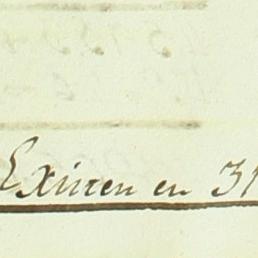 Existen en 31